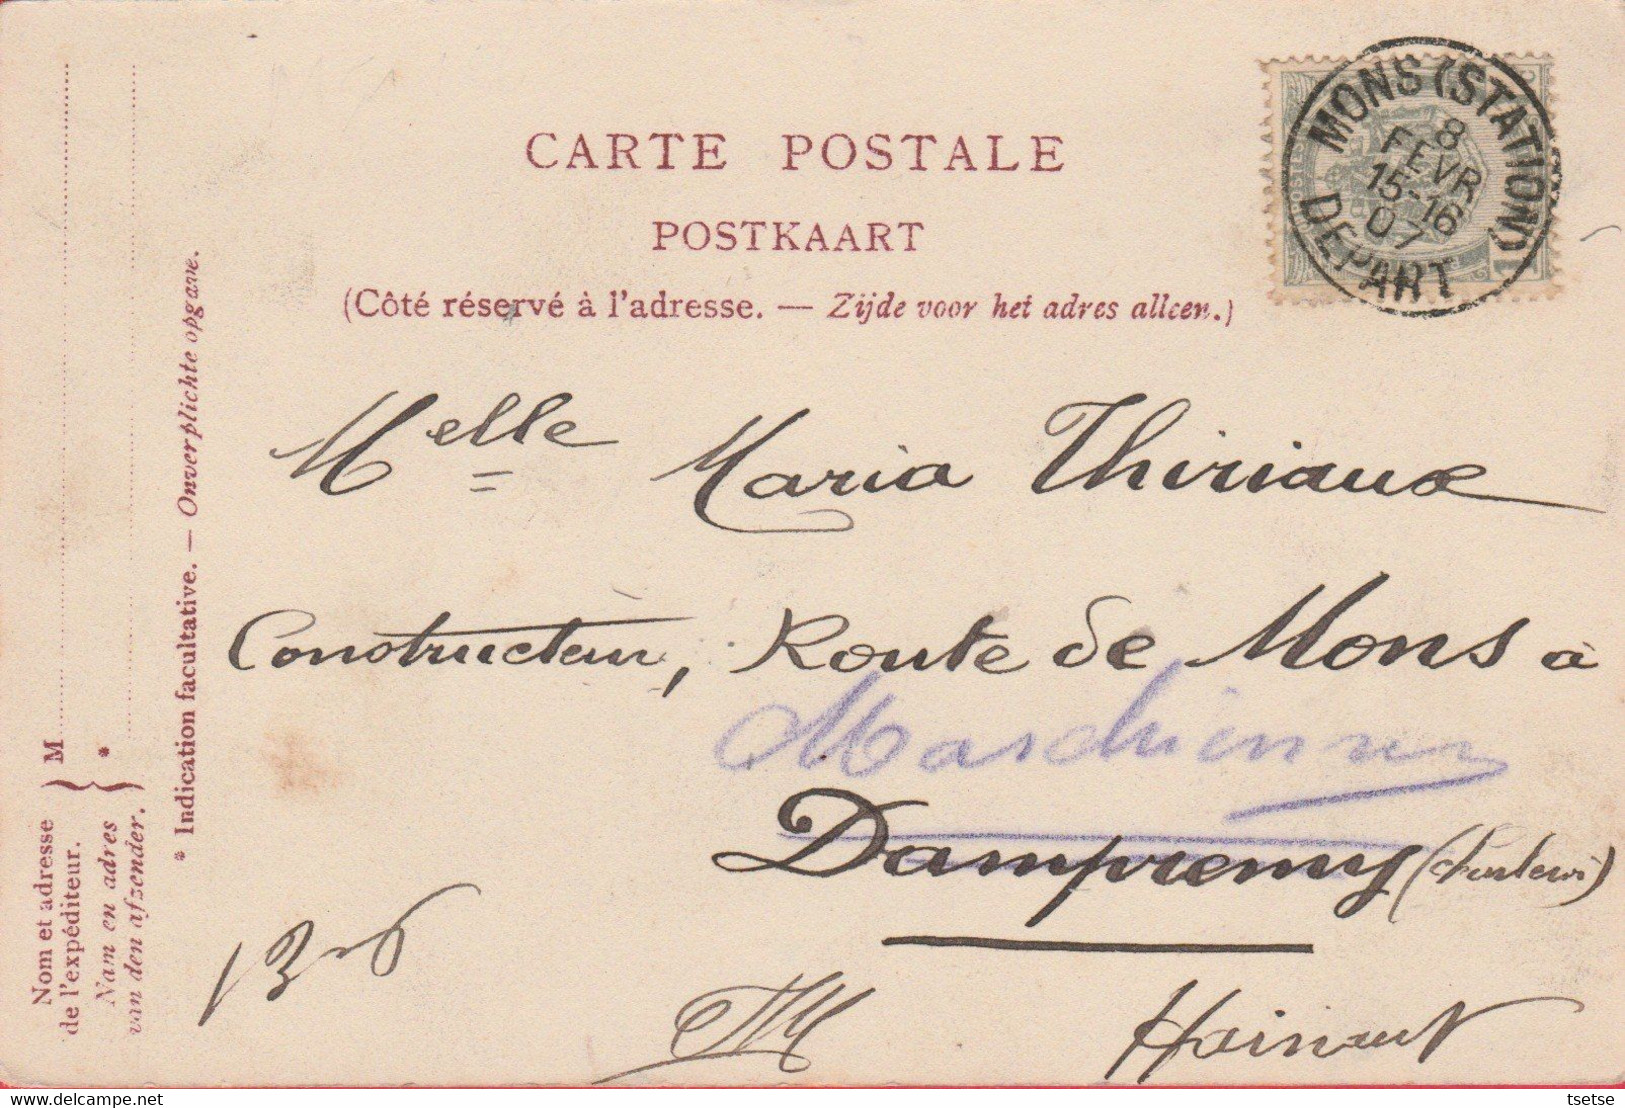 CARTE POSTALE
POSTKAART
(Côté réservé à l'adresse. — Zijde voor het adres alleen.)
MONS (STATION)
8
FEVR
15-16
07
DEPART
Melle Maria Thiriaux
Constructeur, Route de Mons à
Marchienne
Dampremy (Charleroi)
Hainaut
M
*
Nom et adresse
de l'expéditeur.
Nam en adres
van den afzender.
* Indication facultative. — Onverplichte opgave.
delcampe.net
tsetse